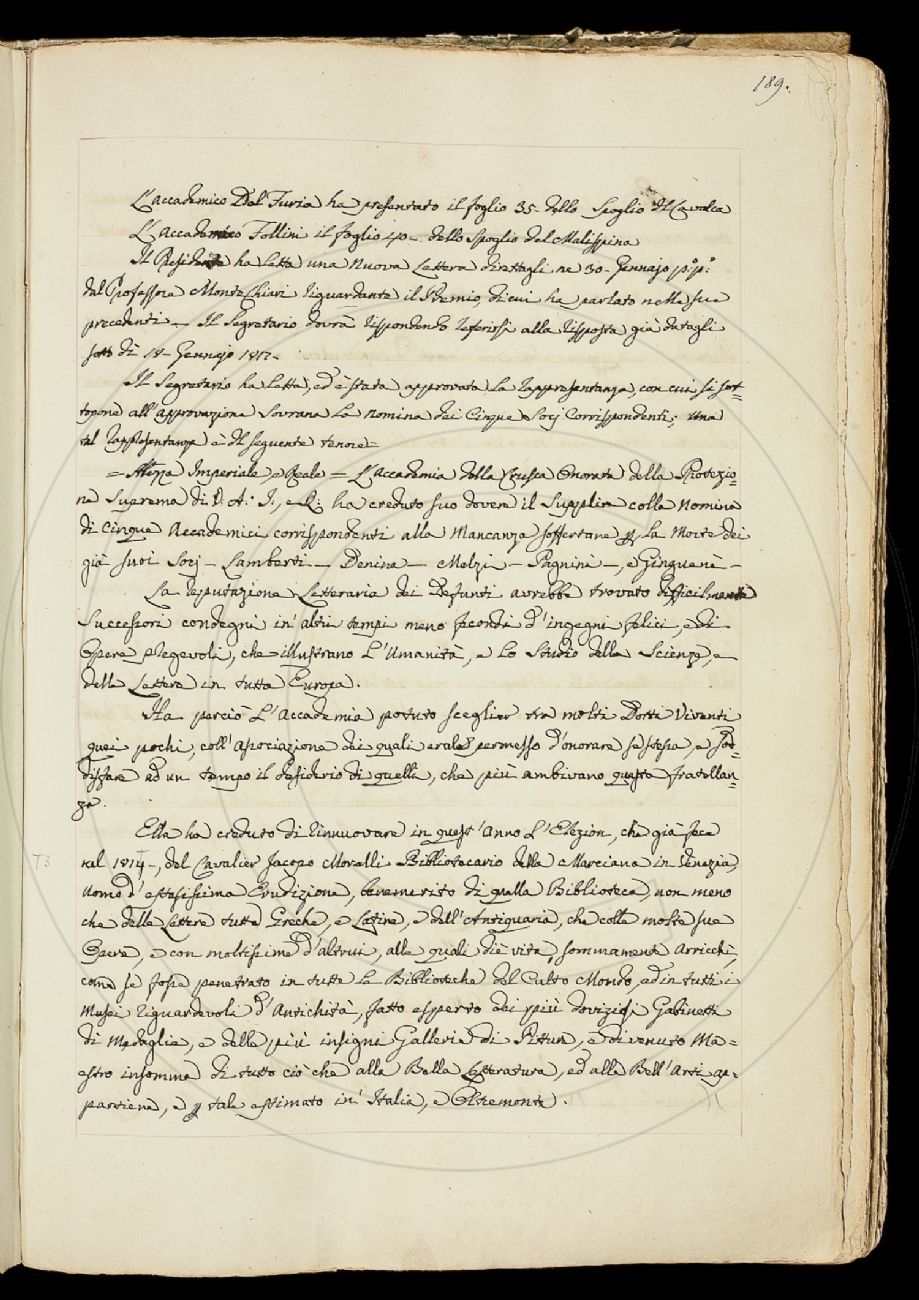 189.
L'accademico Del Furia ha presentato il foglio 35. dello Spoglio del Cavalca
L'Accademico Follini il foglio 40. dello Spoglio del Malispina
Il Presidente ha letta una nuova Lettera direttagli ne 30. Gennajo p.º p.º
dal Professore MonteChiari riguardante il Premio, di cui ha parlato nelle sue
precedenti — Il Segretario dovrà rispondendo referirsi alla risposta già datagli
sotto dì 18. Gennajo 1817.
Il Segretario ha letta, ed è stata approvata la rappresentanza, con cui si sot=
topone all'approvazione Sovrana la nomina dei Cinque Socj Corrispondenti; una
tal rappresentanza è del seguente tenore=
= Altezza Imperiale, e Reale = L'Accademia della Crusca Onorata della Protezio=
ne Suprema di V. A. I., e R. ha creduto suo dovere il Supplire colla nomina
di cinque Accademici corrispondenti alla mancanza soffertane p la morte dei
già suoi Socj — Lamberti — Denina — Melzi — Pagnini —, e Ginguenè —
La reputazione Letteraria dei Defunti avrebbe trovato difficilmente
Successori condegni in altri tempi meno fecondi d'ingegni felici, e di
Opere pregevoli, che illustrano l'Umanità, e lo Studio delle Scienze, e
delle Lettere in tutta Europa.
Ha perciò L'Accademia potuto sceglier tra molti Dotti Viventi
quei pochi, coll'Associazione dei quali erale permesso d'onorare se stessa, e sod=
disfare ad un tempo il desiderio di quelli, che più ambivano questa fratellan=
za.
Ella ha creduto di rinnuovare in quest'anno L'Elezion, che già fece
nel 1814., del Cavalier Jacopo Morelli Bibliotecario della Marciana in Venezia,
Uomo d'estesissima Erudizione, benemerito di quella Biblioteca, non meno
che delle Lettere tutte Greche, e Latine, e dell'Antiquaria, che colle molte sue
Opere, e con moltissime d'altrui, alle quali diè vita, sommamente arricchì,
come se fosse penetrato in tutte le Biblioteche del Culto Mondo, ed in tutti i
Musei riguardevoli d'Antichità, fatto esperto dei più doviziosi Gabinetti
di Medaglie, e delle più insigni Gallerie di Pitture, e divenuto Ma=
estro insomma di tutto ciò che alla Bella Letteratura, ed alle Bell'Arti ap=
partiene, e p tale estimato in Italia, e Oltremonte.